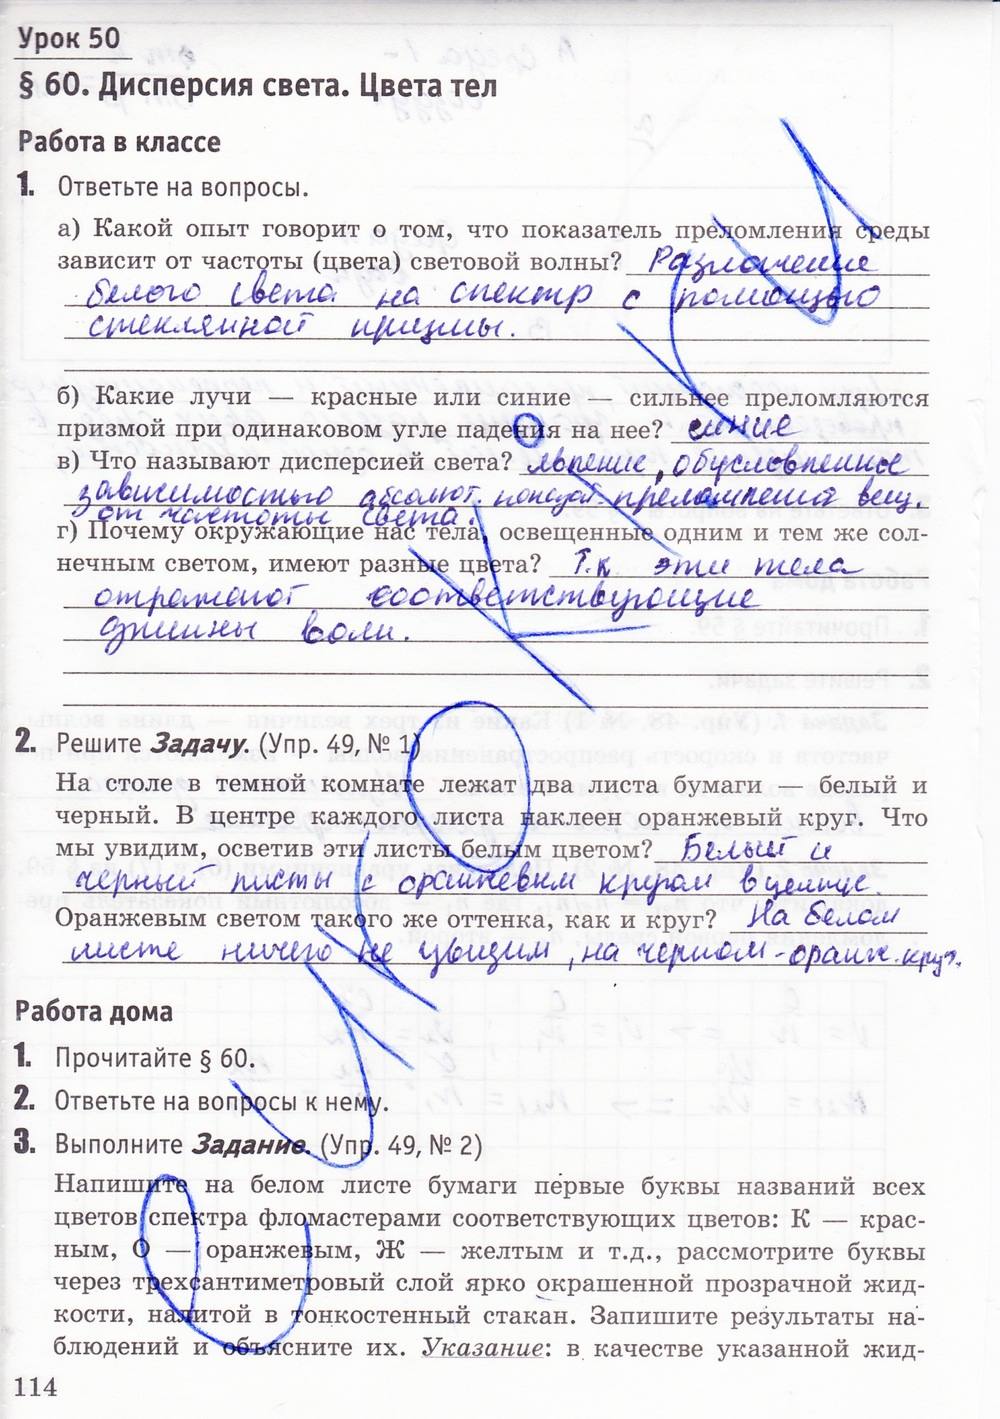 Урок 50
§ 60. Дисперсия света. Цвета тел
Работа в классе
1. Ответьте на вопросы.
а) Какой опыт говорит о том, что показатель преломления среды
зависит от частоты (цвета) световой волны? Разложение
белого света на спектр с помощью
стеклянной призмы.
б) Какие лучи — красные или синие — сильнее преломляются
призмой при одинаковом угле падения на нее? синие
в) Что называют дисперсией света? явление, обусловленное
зависимостью абсолют. показат. преломления вещ.
от частоты света.
г) Почему окружающие нас тела, освещенные одним и тем же сол-
нечным светом, имеют разные цвета? Т.к эти тела
отражают соответствующие
длины волн.
2. Решите Задачу. (Упр. 49, № 1)
На столе в темной комнате лежат два листа бумаги — белый и
черный. В центре каждого листа наклеен оранжевый круг. Что
мы увидим, осветив эти листы белым цветом? Белый и
черный листы с оранжевым кругом в центре.
Оранжевым светом такого же оттенка, как и круг? На белом
листе ничего не увидим, на черном - оранж. круг.
Работа дома
1. Прочитайте § 60.
2. Ответьте на вопросы к нему.
3. Выполните Задание. (Упр. 49, № 2)
Напишите на белом листе бумаги первые буквы названий всех
цветов спектра фломастерами соответствующих цветов: К — крас-
ным, О — оранжевым, Ж — желтым и т.д., рассмотрите буквы
через трехсантиметровый слой ярко окрашенной прозрачной жид-
кости, налитой в тонкостенный стакан. Запишите результаты на-
блюдений и объясните их. Указание: в качестве указанной жид-
114